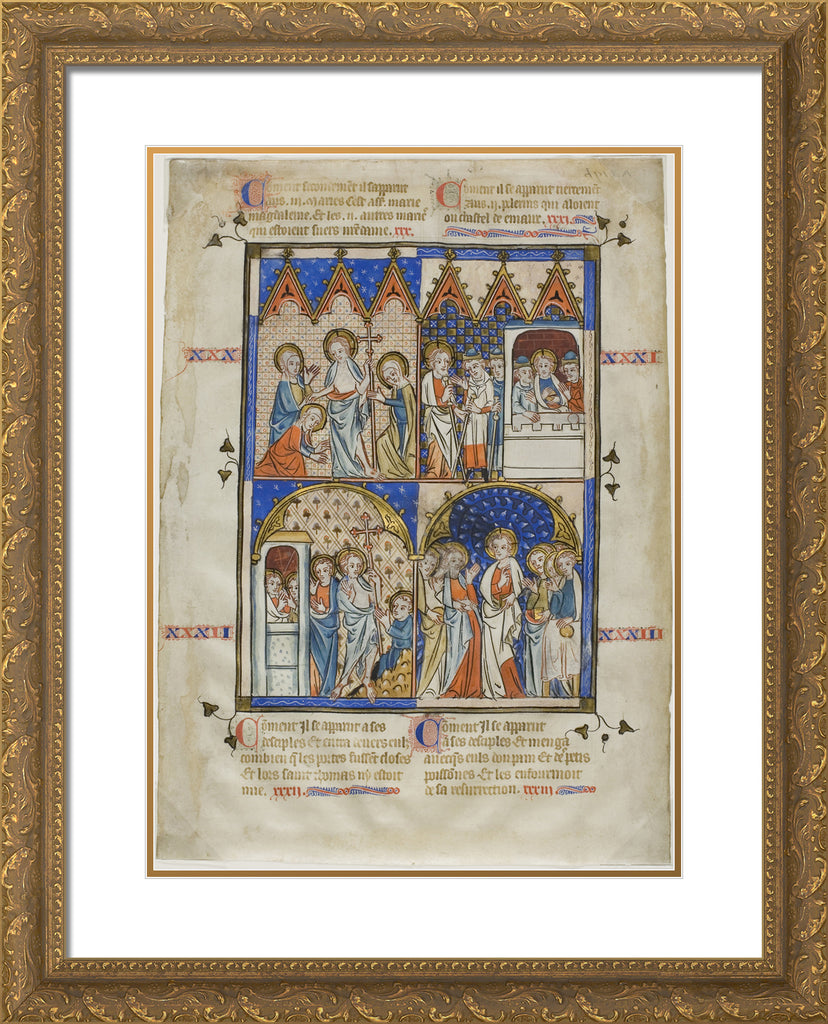 Coment secondement il sapparut
aus .iii. maries cest ass. marie
magdaleine. Et les .ii. autres marie
qui estoient suers nr̃e dame. xxx.
Coment il se apparut tiercemēt
aus .ii. pelerins qui aloient
ou chastel de emaux. xxxi.
XXX
XXXI
XXXII
XXXIII
Coment Il se apparut a ses
desciples Et entra devers eulz
combien q̃ les portes fussēt closes
Et lors saint thomas ny estoit
mie. xxxii
Coment Il se apparut
a ses desciples. Et menga
avecq̃s euls don pain Et de
poissones. Et les enfourmoit
de sa resurrection. xxxiii